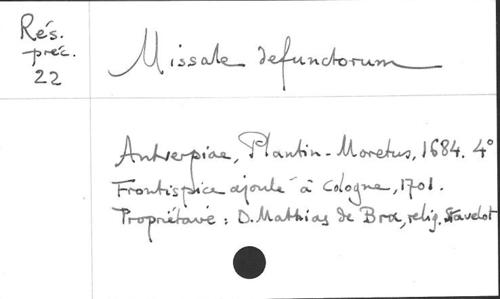 Rés.
préc.
22
Missale defunctorum
Antverpiae, Plantin-Moretus, 1684. 4°
Frontispice ajouté à Cologne, 1701.
Propriétaire : D. Mathias de Bra, relig. Stavelot